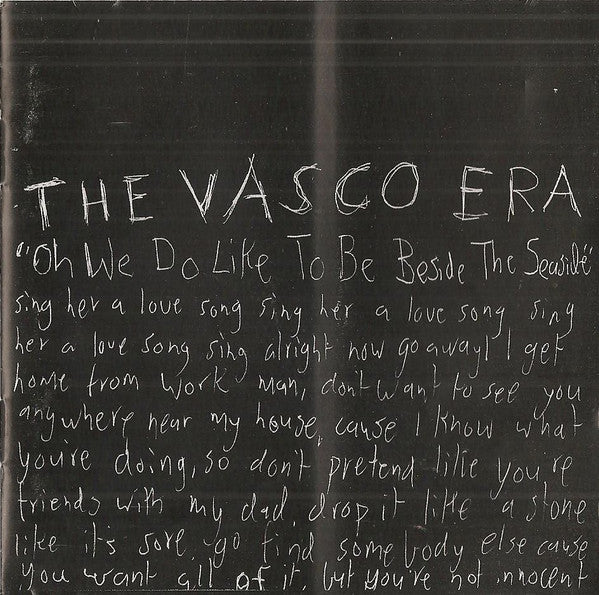 THE VASCO ERA
"Oh We Do Like To Be Beside The Seaside"
sing her a love song sing her a love song sing
her a love song sing alright now go away! I get
home from work man, don't want to see you
anywhere near my house, cause I know what
you're doing, so don't pretend like you're
friends with my dad, drop it like a stone
like it's sore, go find somebody else cause
you want all of it, but you're not innocent